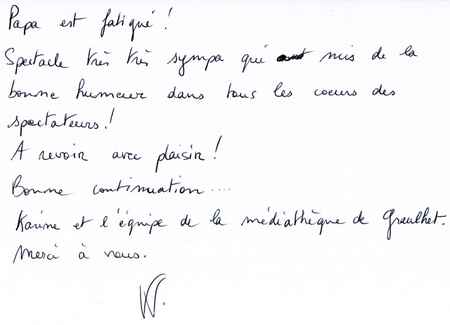 Papa est fatigué !
Spectacle très très sympa qui mis de la
bonne humeur dans tous les coeurs des
spectateurs !
A revoir avec plaisir !
Bonne continuation ....
Karine et l'équipe de la médiathèque de Graulhet.
Merci à vous.